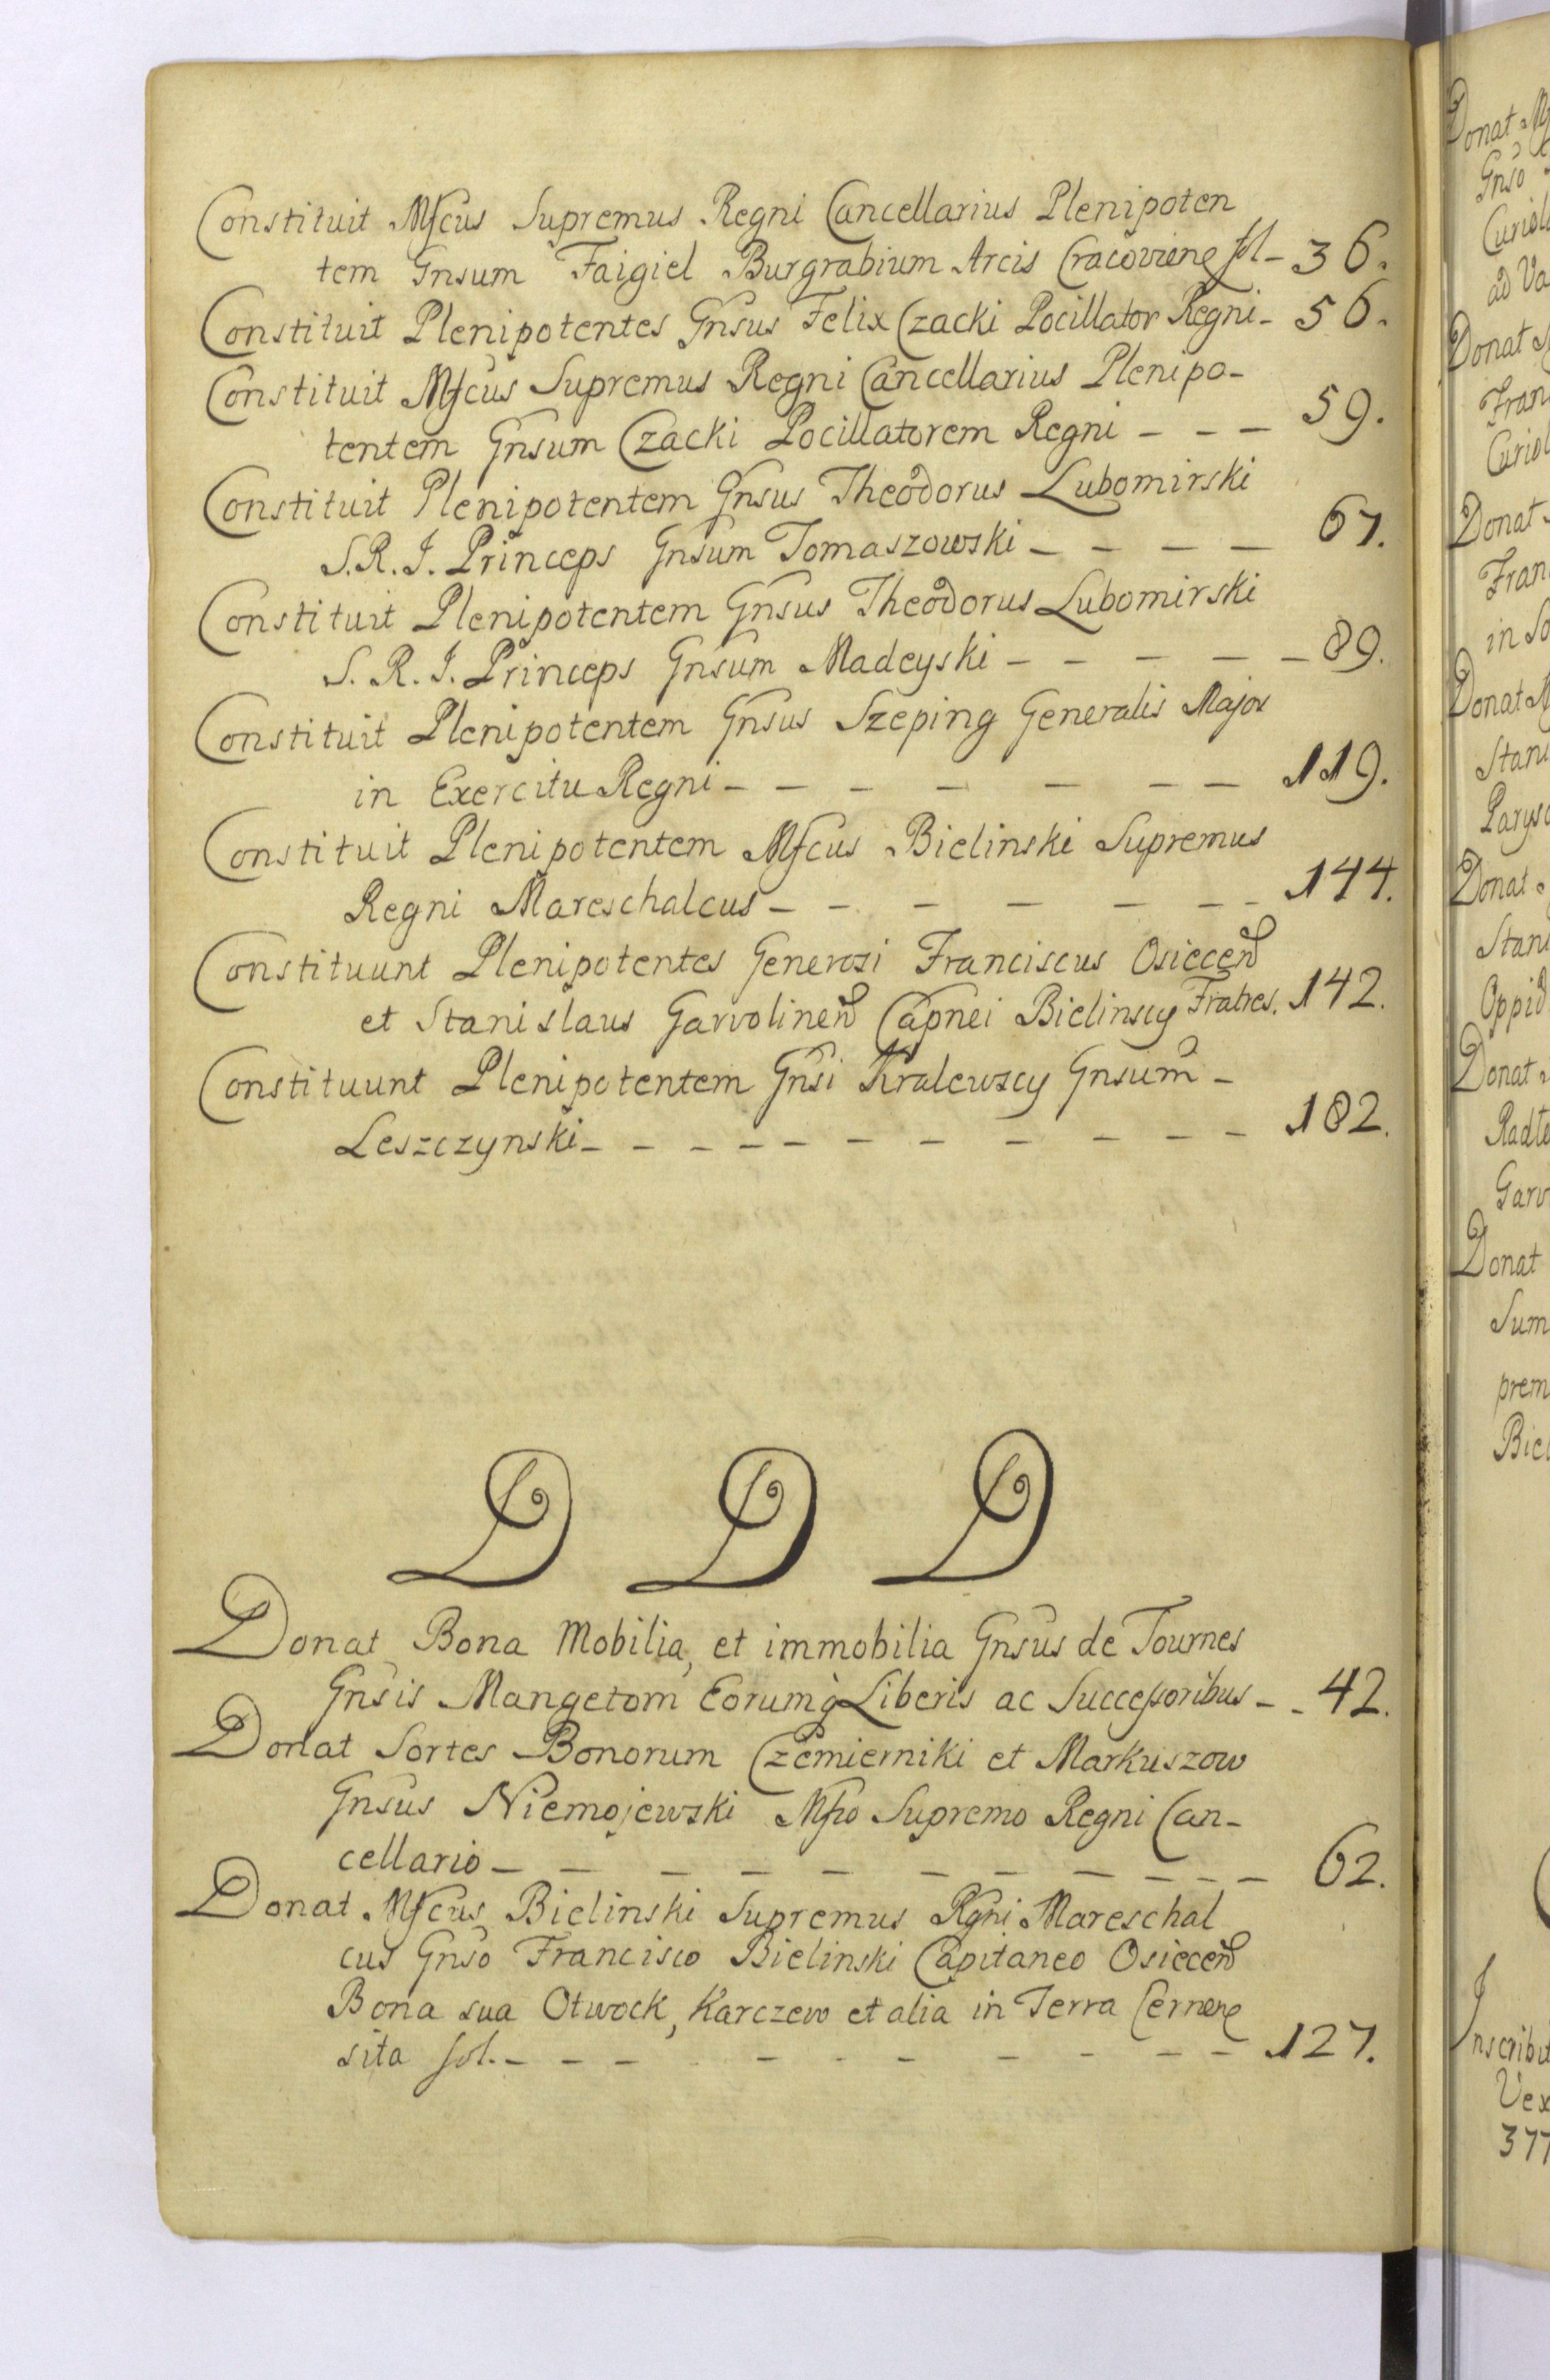 Constituit Mfcus Supremus Regni Cancellarius Plenipoten
tem Gnsum Faigiel Burgrabium Arcis Cracoviene fol - 36.
Constituit Plenipotentes Gnsus Felix Czacki Pocillator Regni - 56.
Constituit Mfcus Supremus Regni Cancellarius Plenipo-
tentem Gnsum Czacki Pocillatorem Regni - - - 59.
Constituit Plenipotentem Gnsus Theodorus Lubomirski
S.R.I. Princeps Gnsum Tomaszowski - - - - 67.
Constituit Plenipotentem Gnsus Theodorus Lubomirski
S.R.I. Princeps Gnsum Madeyski - - - - - 89.
Constituit Plenipotentem Gnsus Szeping Generalis Major
in Exercitu Regni - - - - - - - 119.
Constituit Plenipotentem Mfcus Bielinski Supremus
Regni Mareschalcus - - - - - - - 144.
Constituunt Plenipotentes Generosi Franciscus Osiecen
et Stanislaus Garvolinen Capnei Bielinscy Fratres. 142.
Constituunt Plenipotentem Gnsi Kralewscy Gnsum -
Leszczynski - - - - - - - - - - - 182.
D D D
Donat Bona Mobilia, et immobilia Gnsus de Tournes
Gnsis Mangetom Eorumq Liberis ac Successoribus - - 42.
Donat Sortes Bonorum Czemierniki et Markuszow
Gnsus Niemojewski Mfco Supremo Regni Can-
cellario - - - - - - - - - - - 62.
Donat Mfcus Bielinski Supremus Rgni Mareschal
cus Gnso Francisco Bielinski Capitaneo Osiecen
Bona sua Otwock, Karczew et alia in Terra Cernene
sita fol. - - - - - - - - - - 127.
Donat
Gnso
ad Va
Donat
Fran
Donat
Fran
in So
Donat
Stani
Donat
Stani
Oppid
Donat
Garv
Donat
Sum
prem
Biel
Inscribit
Vex
377